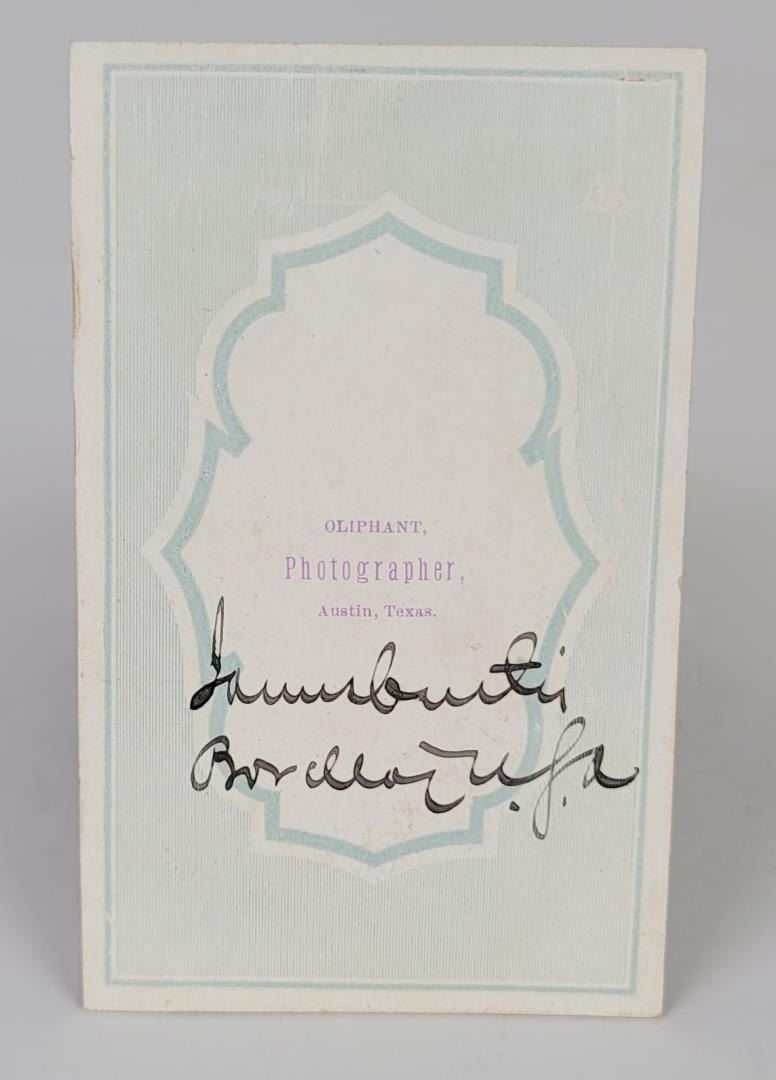 OLIPHANT,
Photographer,
Austin, Texas.
James Curtis
Maj U.S.A